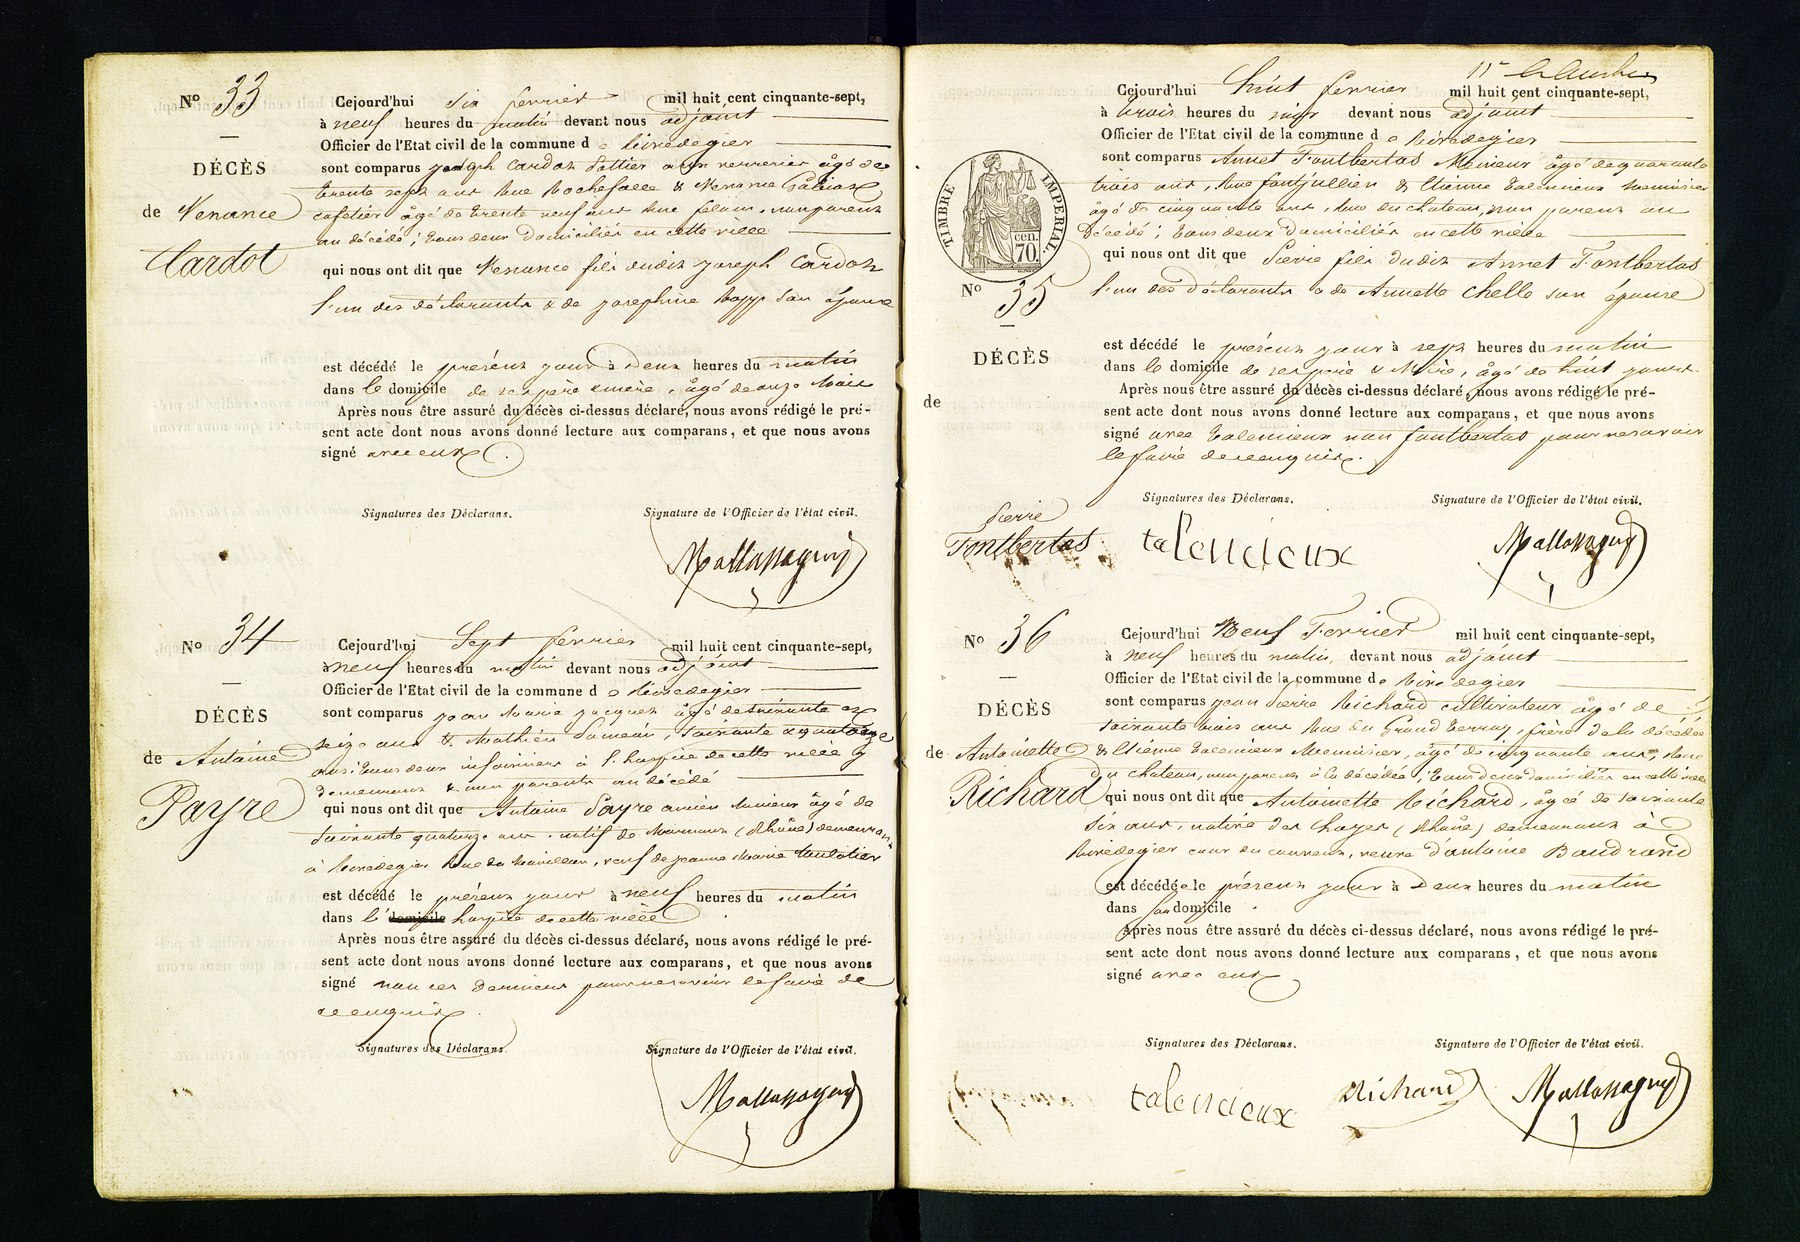 No 33
DÉCÈS
de Venance
Cardot
Cejourd'hui six fevrier mil huit cent cinquante-sept,
à neuf heures du matin devant nous adjoint
Officier de l'Etat civil de la commune de Rivedegier
sont comparus joseph Cardot Potier aux verreries âgé de
trente sept ans Rue Rochefolle & Venance
cafetier âgé de trente neuf ans Rue feloin, non parent
au décédé; tous deux domiciliés en cette ville
qui nous ont dit que Venance fils dudit joseph Cardot
l'un des déclarants & de josephine Rapp son épouse
est décédé le présent jour à Deux heures du matin
dans le domicile de ses père & mère, âgé de onze Mois
Après nous être assuré du décès ci-dessus déclaré, nous avons rédigé le pré-
sent acte dont nous avons donné lecture aux comparans, et que nous avons
signé avec eux.
Signatures des Déclarans. Signature de l'Officier de l'état civil.
Mallassagny
No 34
DÉCÈS
de Antoine
Payre
Cejourd'hui Sept fevrier mil huit cent cinquante-sept,
à neuf heures du matin devant nous adjoint
Officier de l'Etat civil de la commune de Rivedegier
sont comparus jean Marie jacques âgé de soixante et
seize ans & Mathieu Dumein, soixante & quatorze
ans; tous deux infirmiers à l'hospice de cette ville y
demeurant & non parents au décédé
qui nous ont dit que Antoine Payre ancien Mineur âgé de
soixante quatorze ans, natif de Mornant (Rhône) demeurant
à Rivedegier Rue du Mouillon, veuf de jeanne Marie
est décédé le présent jour à neuf heures du matin
dans l'domicile hospice de cette ville
Après nous être assuré du décès ci-dessus déclaré, nous avons rédigé le pré-
sent acte dont nous avons donné lecture aux comparans, et que nous avons
signé non ces Derniers pour ne savoir le faire de
ce enquis.
Signatures des Déclarans. Signature de l'Officier de l'état civil.
Mallassagny
11e
TIMBRE IMPÉRIAL.
cen. 70.
No 35
DÉCÈS
de
Pierre
Fontbertas
Cejourd'hui huit fevrier mil huit cent cinquante-sept,
à trois heures du soir devant nous adjoint
Officier de l'Etat civil de la commune de Rivedegier
sont comparus Annet Fontbertas Mineur âgé de quarante
trois ans, Rue fontjullien & Etienne Talencieux Menuisier
âgé de cinquante ans, Rue du chateau, non parent au
Décédé; tous deux Domiciliés en cette ville
qui nous ont dit que Pierre fils dudit Annet Fontbertas
l'un des Déclarants & de Annette Chelle son épouse
est décédé le présent jour à sept heures du matin
dans le domicile de ses père & Mère, âgé de huit jours.
Après nous être assuré du décès ci-dessus déclaré, nous avons rédigé le pré-
sent acte dont nous avons donné lecture aux comparans, et que nous avons
signé avec Talencieux non fontbertas pour ne savoir
le faire de ce enquis.
Signatures des Déclarans. Signature de l'Officier de l'état civil.
talencieux Mallassagny
No 36
DÉCÈS
de Antoinette
Richard
Cejourd'hui Neuf Fevrier mil huit cent cinquante-sept,
à neuf heures du matin, devant nous adjoint
Officier de l'Etat civil de la commune de Rivedegier
sont comparus jean Pierre Richard cultivateur âgé de
soixante trois ans Rue du Grand , frère de la décédée
& Etienne Talencieux Menuisier, âgé de cinquante ans, Rue
du chateau, non parent à la décédée; tous deux domiciliés en cette ville
qui nous ont dit que Antoinette Richard, âgée de soixante
six ans, native des hayes (Rhône) demeurant à
Rivedegier cour du couvent, veuve d'antoine Baudrand
est décédée le présent jour à Deux heures du matin
dans son domicile.
Après nous être assuré du décès ci-dessus déclaré, nous avons rédigé le pré-
sent acte dont nous avons donné lecture aux comparans, et que nous avons
signé avec eux
Signatures des Déclarans. Signature de l'Officier de l'état civil.
talencieux Richard Mallassagny